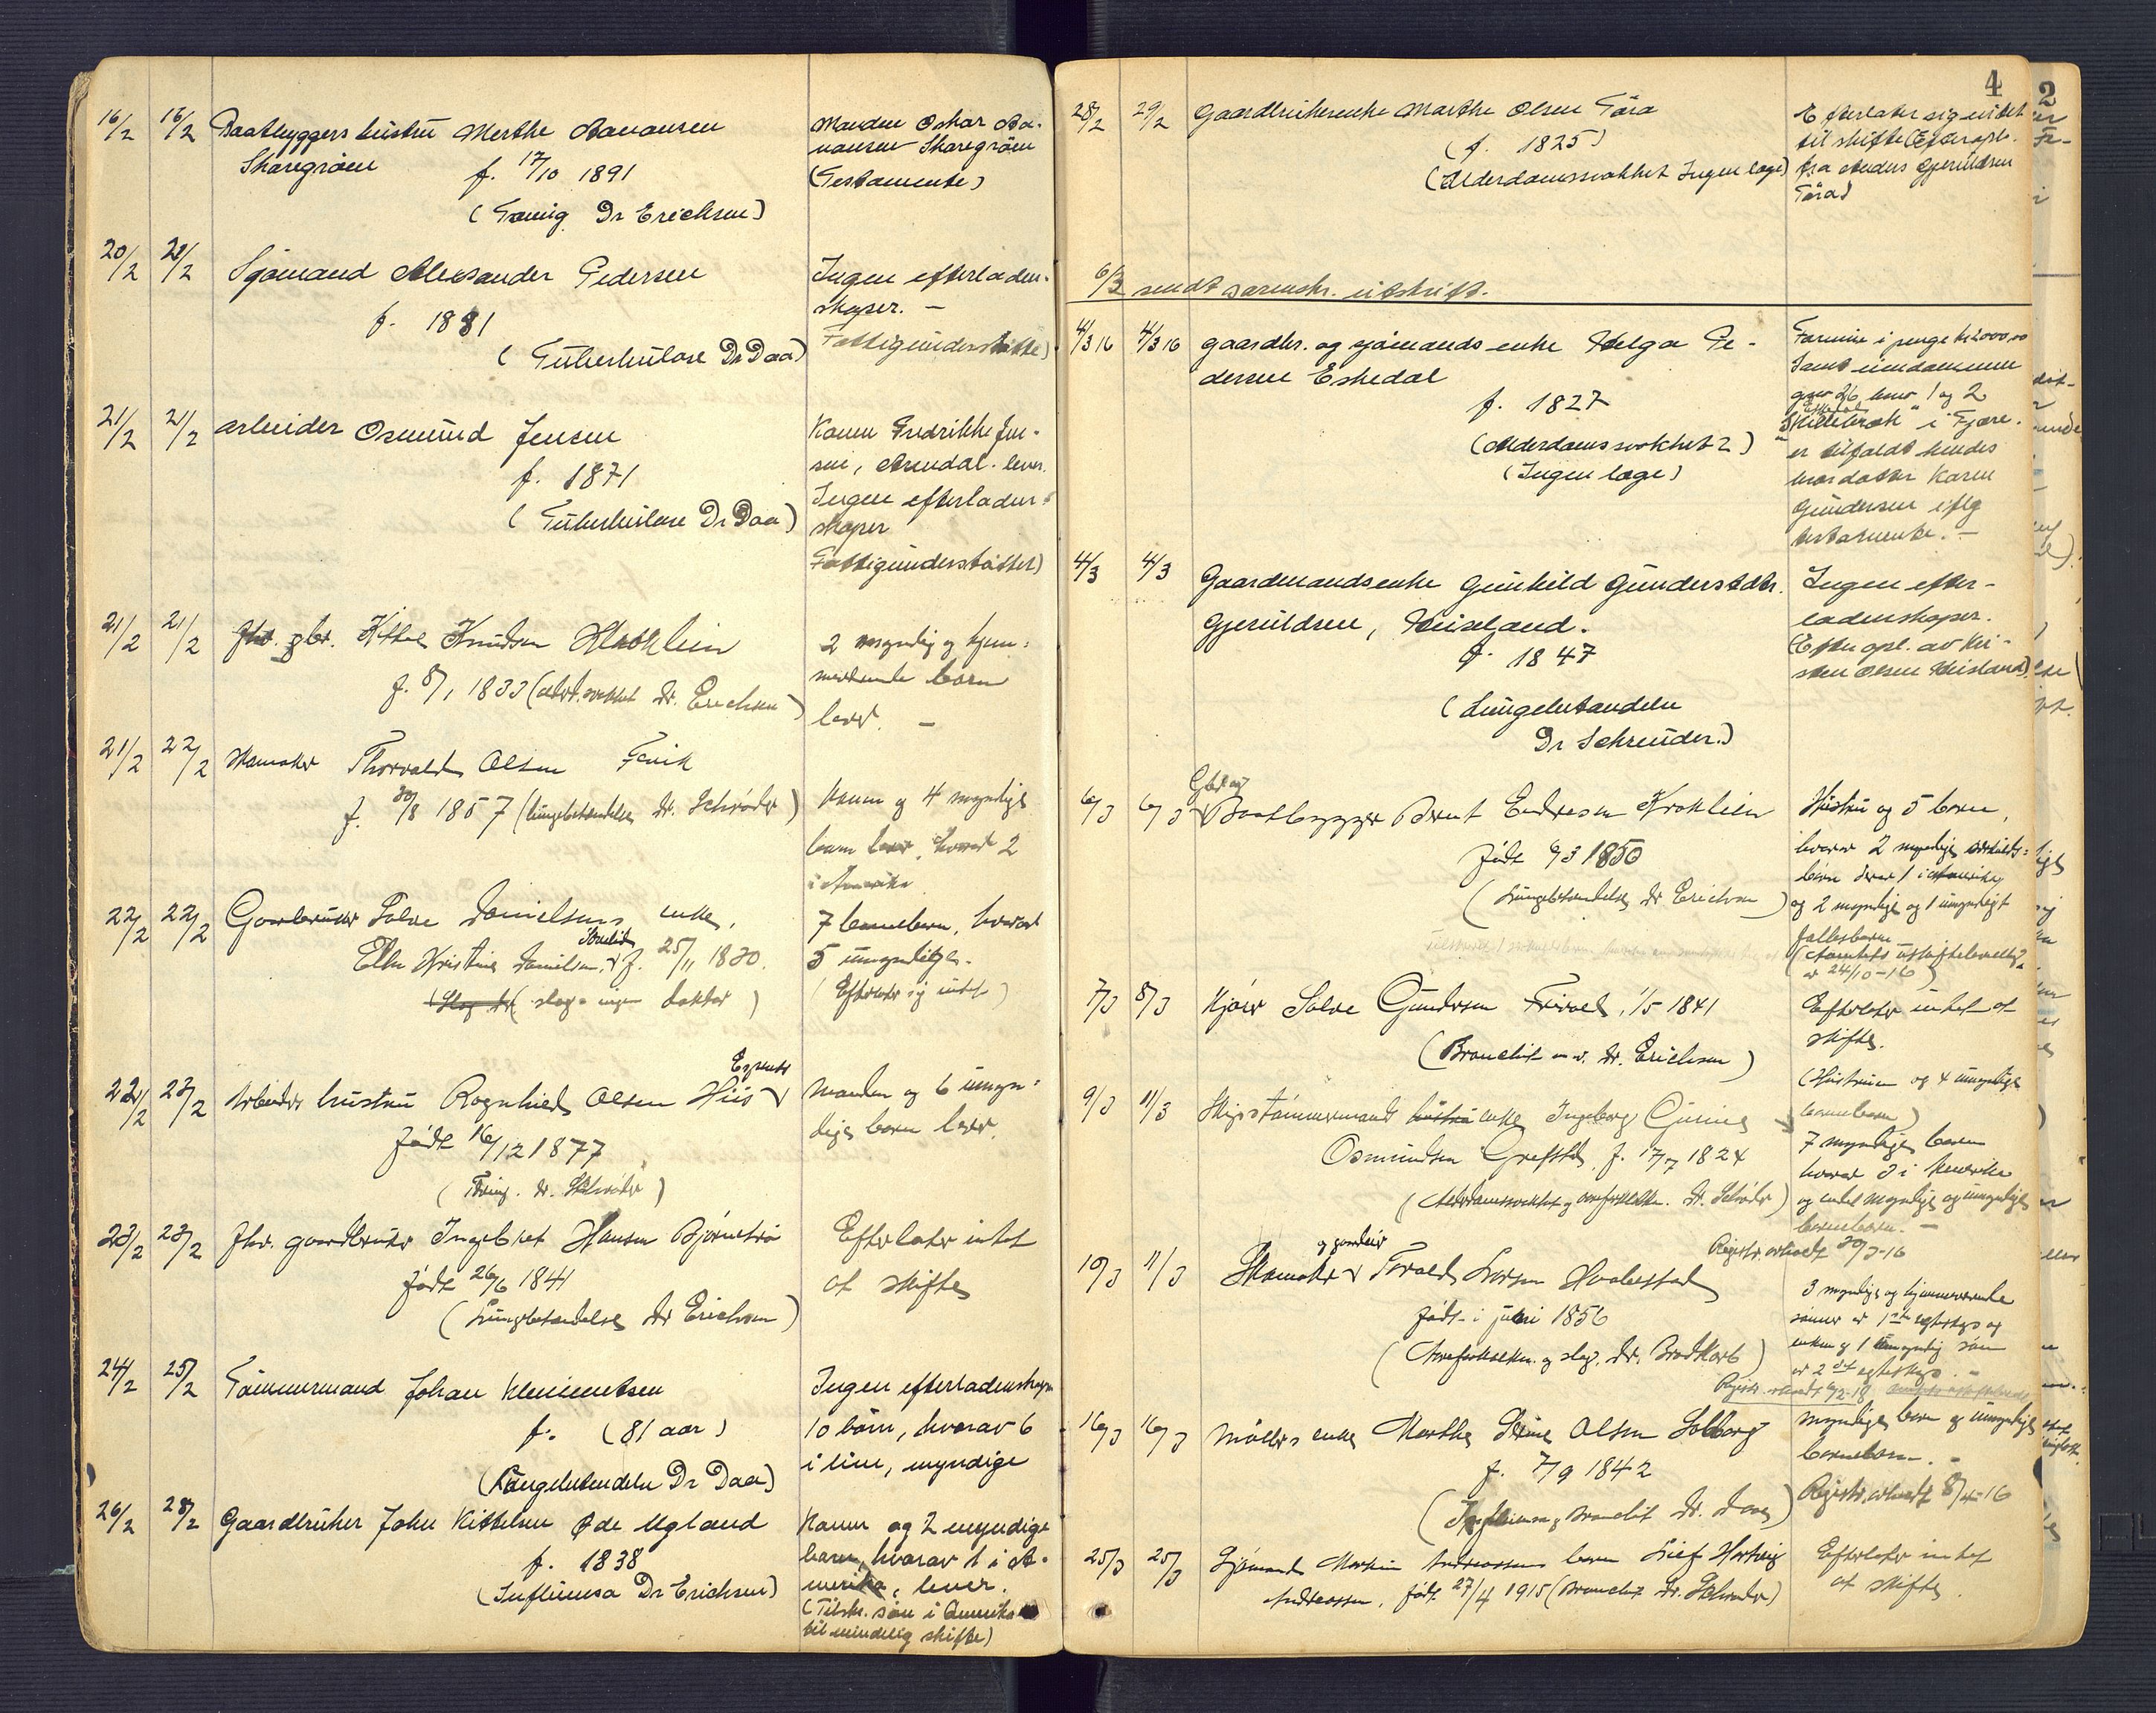 16/2 16/2 Baatbyggers hustru Merthe Aanansen
Skaregrøen f. 17/10 1891
(Tæring Dr Erichsen)
Manden Oskar Aa-
nansen Skaregrøen
(Testamente)
20/2 21/2 Sjømand Aleksander Pedersen
f. 1881
(Tuberkulose Dr Daa)
Ingen efterladen-
skaper. –
Fattigunderstøtte)
21/2 21/2 arbeider Osmund Jensen
f. 1871
(Tuberkulose Dr Daa)
Konen Fredrikke Jen-
sen, Arendal lever.
Ingen efterladen-
skaper
Fattigunderstøttet)
21/2 21/2 fhv. gbr. Kittel Knudsen
f. 8/1 1833 (Dr. Erichsen)
2 myndig og hjem-
børn
lever. –
21/2 22/2 Skomaker Thorvald Olsen Fevik
f. 30/8 1857 (lungebetændelse Dr. Schrøder)
konen og 4 myndige
børn lever, hvorav 2
i Amerika
22/2 22/2 Gaardbruker Salve Danielsens enke,
Ellen Kristine Danielsen, f. 25/11 1830.
(slag - ingen doktor)
7 barnebørn, hvorav
5 umyndige.
(Efterlater sig intet)
22/2 23/2 Arbeiders hustru Ragnhild Olsen Hiis
født 16/12 1877
(Tæring. Dr. Schrøder)
Manden og 6 umyn-
dige børn lever.
23/2 23/2 Fhv. gaardbruker Ingebret Hansen Bjørnetrø
født 26/6 1841
(Lungebetændelse Dr Erichsen)
Efterlater intet
at skifte
24/2 25/2 Tømmermand Johan Klemmetsen
f. (81 aar)
(Lungebetændelse Dr Daa)
Ingen efterladenskaper
10 børn, hvorav 6
i live, myndige
26/2 28/2 Gaardbruker John Kittelsen Øde Ugland
f. 1838
(Influensa Dr Erichsen)
Konen og 2 myndige
barn, hvorav 1 i A-
merika, lever.
(Tilskr. søn i Amerika
til mindelig skifte)
4
28/2 29/2 Gaardbrukerenke Marthe OlsenFøra
(f. 1825)
(Alderdomssvakhet Ingen læge)
Efterlater sig intet
til skifte (Efter opl.
fra Anders Gjeruldsen
Føra)
6/3 sendt sorenskr. utskrift.
4/3 16 4/3 16 gaardbr. og sjømands enke Helga Pe-
dersen Eskedal
f. 1827
(Alderdomssvakhet)
(Ingen læge)
Formue i penge kr 2000,00
samt eiendommene
gnr 26 bnr 1 og 2
Eskedal
"Skillebæk" i Fjære.
er tilfaldt hendes
brordatter Karen
Gundersen iflg
testamente. –
4/3 4/3 Gaardmandsenke Gunhild Gundersdtr.
Gjeruldsen, Heiseland.
f. 1847
(Lungebetændelse
Dr Schreuder.)
Ingen efter-
ladenskaper.
(Efter opl. av Kri-
sten Olsen Heisland)
6/3 6/3 Baatbygger Bernt Endresen Kroklien
født 9/3 1850
(Lungebetændelse Dr Erichsen)
Hustru og 5 børn,
hvorav 2 myndige særkulds-
børn derav 1 i Amerika
og 2 myndige og 1 umyndigt
fællesbarn
(Amtets uskiftebevilling
av 24/10-16)
7/3 8/3 Kjører Salve Gundersen Trivoll, 1/5 1841
(Bronchit m.v. Dr. Erichsen)
Efterlater intet at
skifte.
(Hustruen og 4 umyndige
barnebørn)
9/3 11/3 Skipstømmermands enke Ingeborg Gurine
Osmundsen Grefstad, f. 17/7 1824
(Alderdomssvakhet og Dr. Schrøder)
7 myndige børn
hvorav 3 i Amerika
og endel myndige og umyndige
barnebørn. –
Registr. avholdt 30/3-16
og gaardeier
10/3 11/3 Skomaker Torvald Larsen
født i juni 1856
(og slag. Dr. Brodkorb)
3 myndige og hjemmeværende
sønner av 1ste egteskap og
enken og 1 umyndig søn
av 2det egteskap. –
16/3 16/3 Møllers enke Marthe Olsen Solberg
f. 7/9 1842
(Influensa og bronchit Dr. Daa)
Myndige børn og umyndige
barnebørn. –
Registr. avholdt 8/4-16
25/3 25/3 Sjømand Martin Andreassens barn Leif Hartvig
Andreassen, født 27/4 1915 (Bronchit Dr. Schrøder)
Efterlater intet
at skifte
2